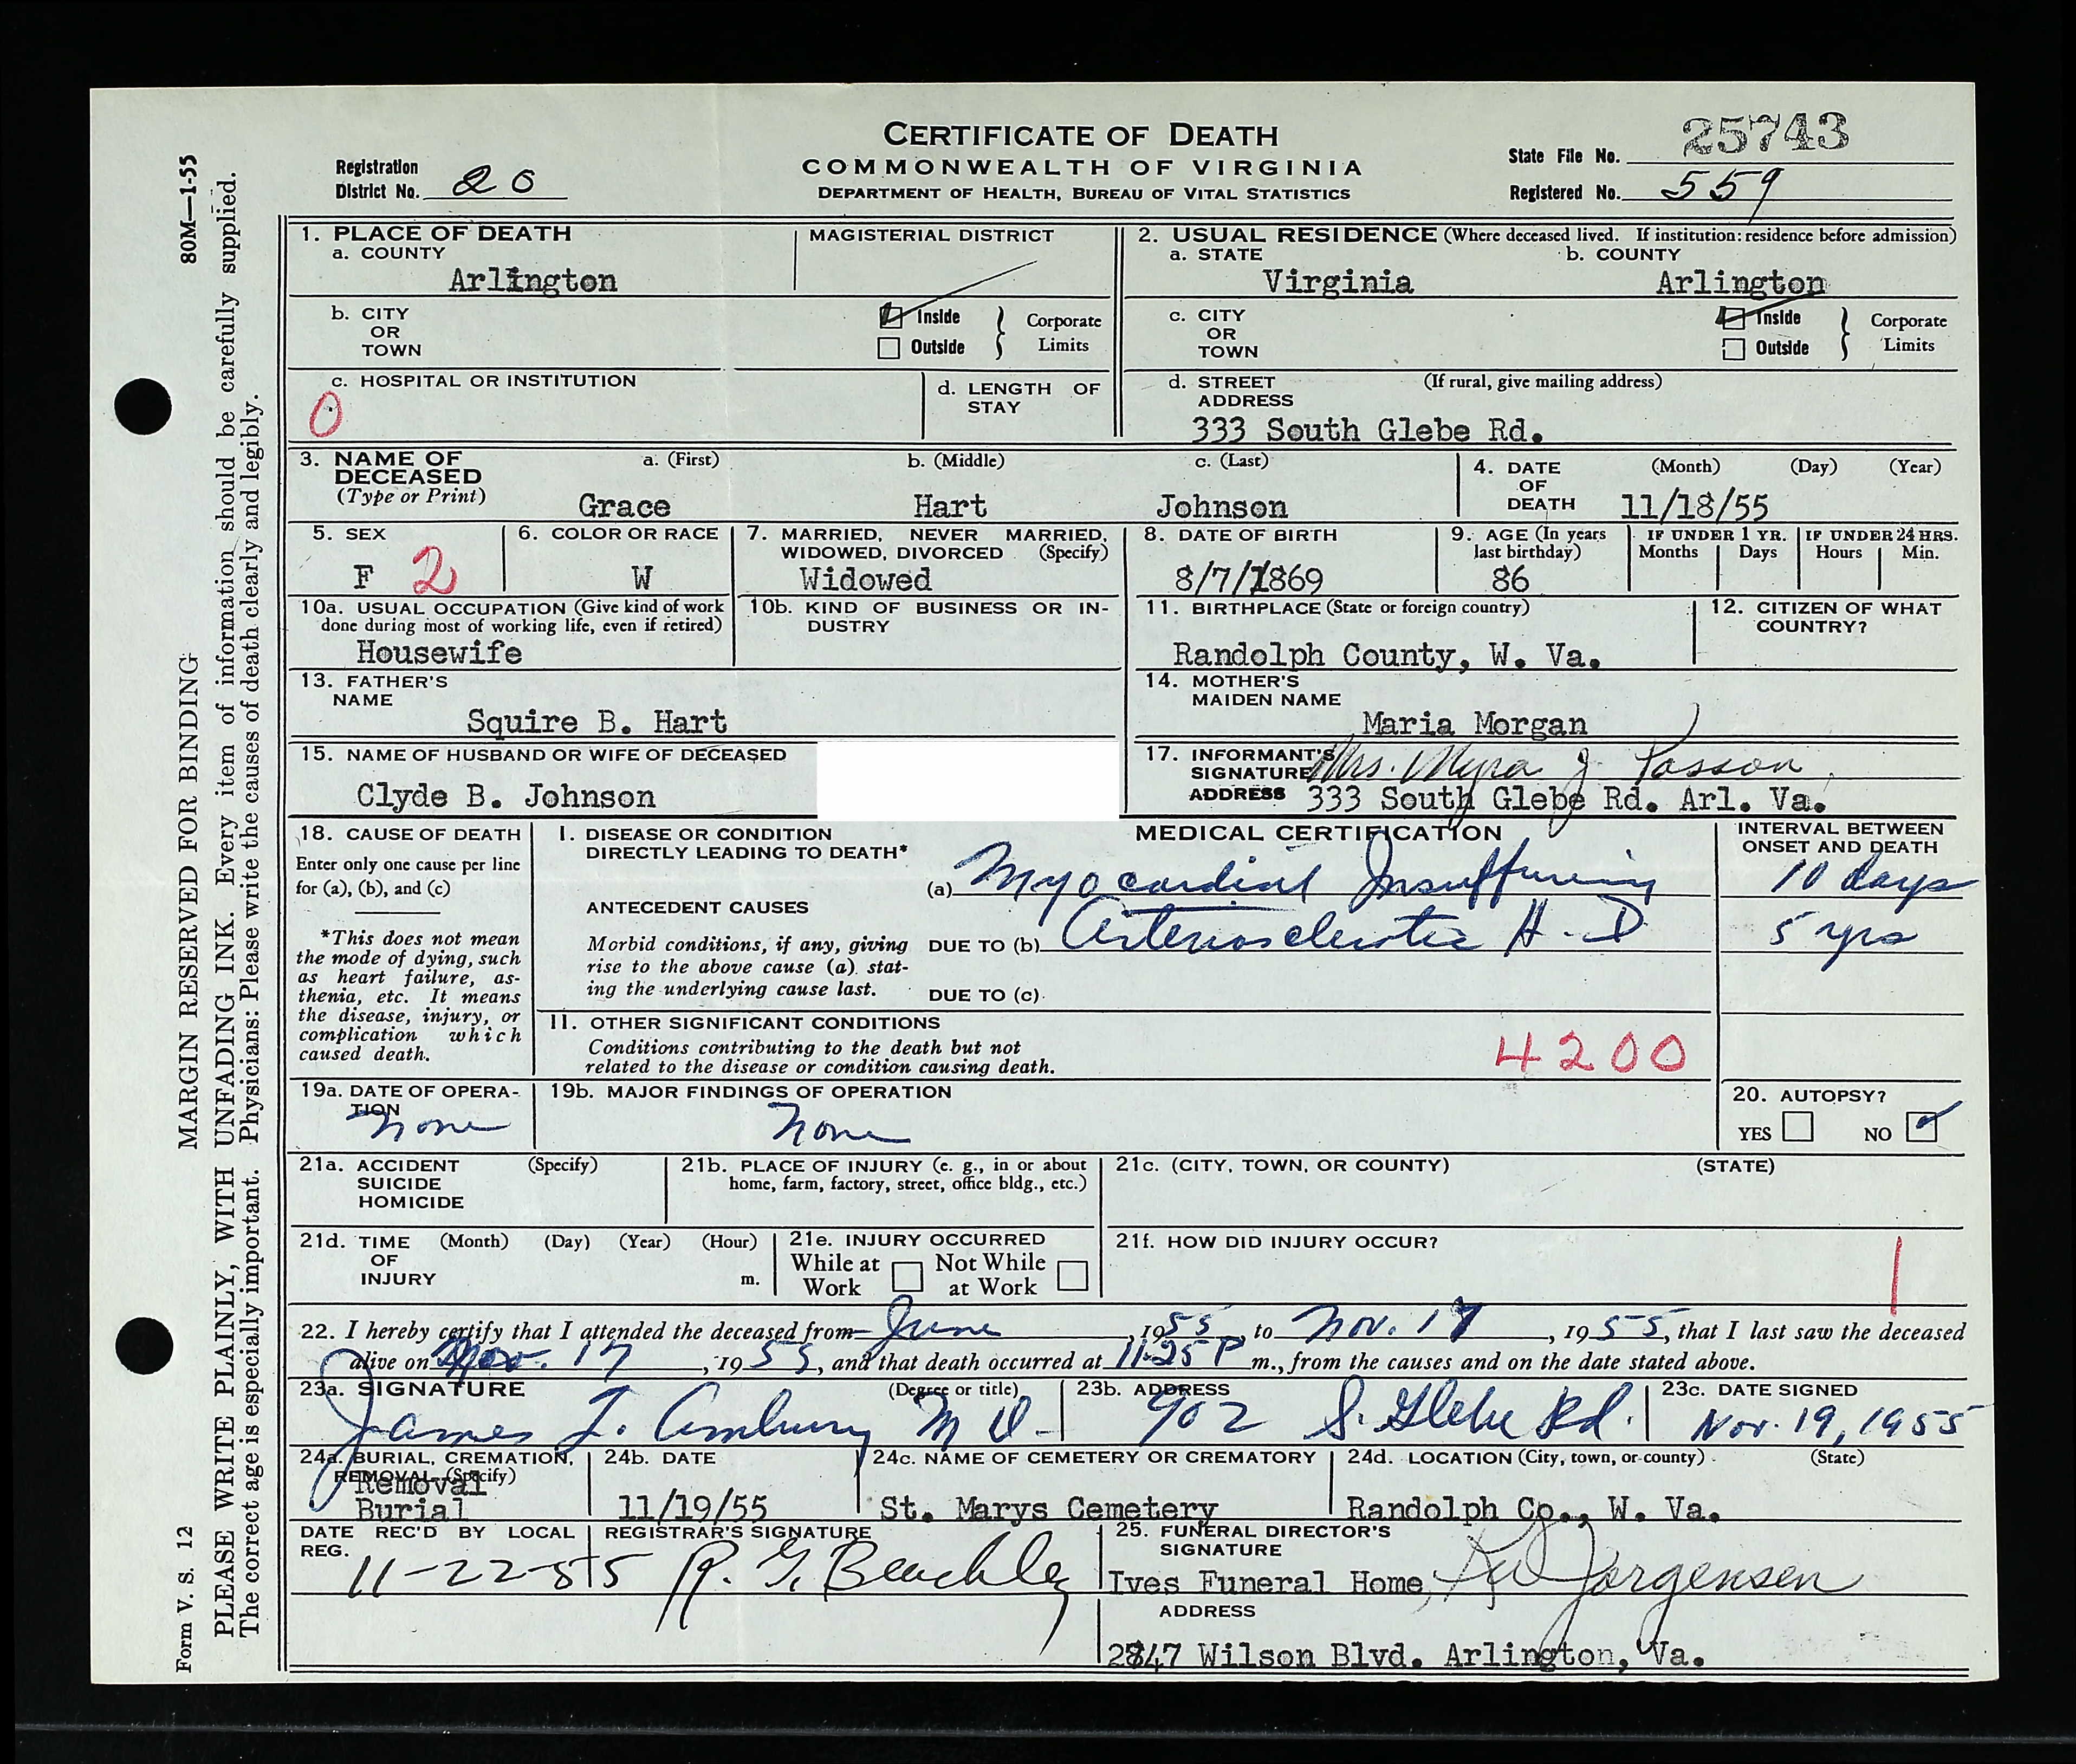 CERTIFICATE OF DEATH
COMMONWEALTH OF VIRGINIA
DEPARTMENT OF HEALTH, BUREAU OF VITAL STATISTICS
Registration
District No. 20
State File No. 25743
Registered No. 559
80M—1-55
MARGIN RESERVED FOR BINDING
PLEASE WRITE PLAINLY, WITH UNFADING INK. Every item of information should be carefully supplied.
The correct age is especially important. Physicians: Please write the causes of death clearly and legibly.
Form V. S. 12
1. PLACE OF DEATH
a. COUNTY
Arlington
MAGISTERIAL DISTRICT
b. CITY
OR
TOWN
Inside
Outside
Corporate
Limits
c. HOSPITAL OR INSTITUTION
0
d. LENGTH OF
STAY
2. USUAL RESIDENCE (Where deceased lived. If institution: residence before admission)
a. STATE
Virginia
b. COUNTY
Arlington
c. CITY
OR
TOWN
Inside
Outside
Corporate
Limits
d. STREET (If rural, give mailing address)
ADDRESS
333 South Glebe Rd.
3. NAME OF
DECEASED
(Type or Print)
a. (First)
Grace
b. (Middle)
Hart
c. (Last)
Johnson
4. DATE
OF
DEATH
(Month) (Day) (Year)
11/18/55
5. SEX
F 2
6. COLOR OR RACE
W
7. MARRIED, NEVER MARRIED,
WIDOWED, DIVORCED (Specify)
Widowed
8. DATE OF BIRTH
8/7/1869
9. AGE (In years
last birthday)
86
IF UNDER 1 YR.
Months Days
IF UNDER 24 HRS.
Hours Min.
10a. USUAL OCCUPATION (Give kind of work
done during most of working life, even if retired)
Housewife
10b. KIND OF BUSINESS OR IN-
DUSTRY
11. BIRTHPLACE (State or foreign country)
Randolph County, W. Va.
12. CITIZEN OF WHAT
COUNTRY?
13. FATHER'S
NAME
Squire B. Hart
14. MOTHER'S
MAIDEN NAME
Maria Morgan
15. NAME OF HUSBAND OR WIFE OF DECEASED
Clyde B. Johnson
17. INFORMANT'S
SIGNATURE Mrs. Myra J. Posson
ADDRESS 333 South Glebe Rd. Arl. Va.
18. CAUSE OF DEATH
Enter only one cause per line
for (a), (b), and (c)
*This does not mean
the mode of dying, such
as heart failure, as-
thenia, etc. It means
the disease, injury, or
complication which
caused death.
MEDICAL CERTIFICATION
INTERVAL BETWEEN
ONSET AND DEATH
I. DISEASE OR CONDITION
DIRECTLY LEADING TO DEATH*
(a) Myocardial Insufficiency 10 days
ANTECEDENT CAUSES
Morbid conditions, if any, giving
rise to the above cause (a) stat-
ing the underlying cause last.
DUE TO (b) Arteriosclerotic H.D 5 yrs
DUE TO (c)
II. OTHER SIGNIFICANT CONDITIONS
Conditions contributing to the death but not
related to the disease or condition causing death.
4200
19a. DATE OF OPERA-
TION
None
19b. MAJOR FINDINGS OF OPERATION
None
20. AUTOPSY?
YES NO
21a. ACCIDENT (Specify)
SUICIDE
HOMICIDE
21b. PLACE OF INJURY (e. g., in or about
home, farm, factory, street, office bldg., etc.)
21c. (CITY, TOWN, OR COUNTY) (STATE)
21d. TIME (Month) (Day) (Year) (Hour)
OF
INJURY m.
21e. INJURY OCCURRED
While at
Work
Not While
at Work
21f. HOW DID INJURY OCCUR?
1
22. I hereby certify that I attended the deceased from June, 1955, to Nov. 17, 1955, that I last saw the deceased
alive on Nov. 17, 1955, and that death occurred at 11:25 P m., from the causes and on the date stated above.
23a. SIGNATURE (Degree or title)
James T. Ambury MD
23b. ADDRESS
902 S. Glebe Rd.
23c. DATE SIGNED
Nov. 19, 1955
24a. BURIAL, CREMATION,
REMOVAL (Specify)
Removal
Burial
24b. DATE
11/19/55
24c. NAME OF CEMETERY OR CREMATORY
St. Marys Cemetery
24d. LOCATION (City, town, or county) (State)
Randolph Co., W. Va.
DATE REC'D BY LOCAL
REG.
11-22-55
REGISTRAR'S SIGNATURE
R. G. Beachley
25. FUNERAL DIRECTOR'S
SIGNATURE
Ives Funeral Home, Jorgensen
ADDRESS
2847 Wilson Blvd. Arlington, Va.